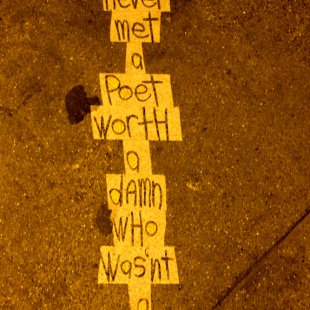 never
met
a
Poet
worth
a
damn
wHo
Was'nt
a